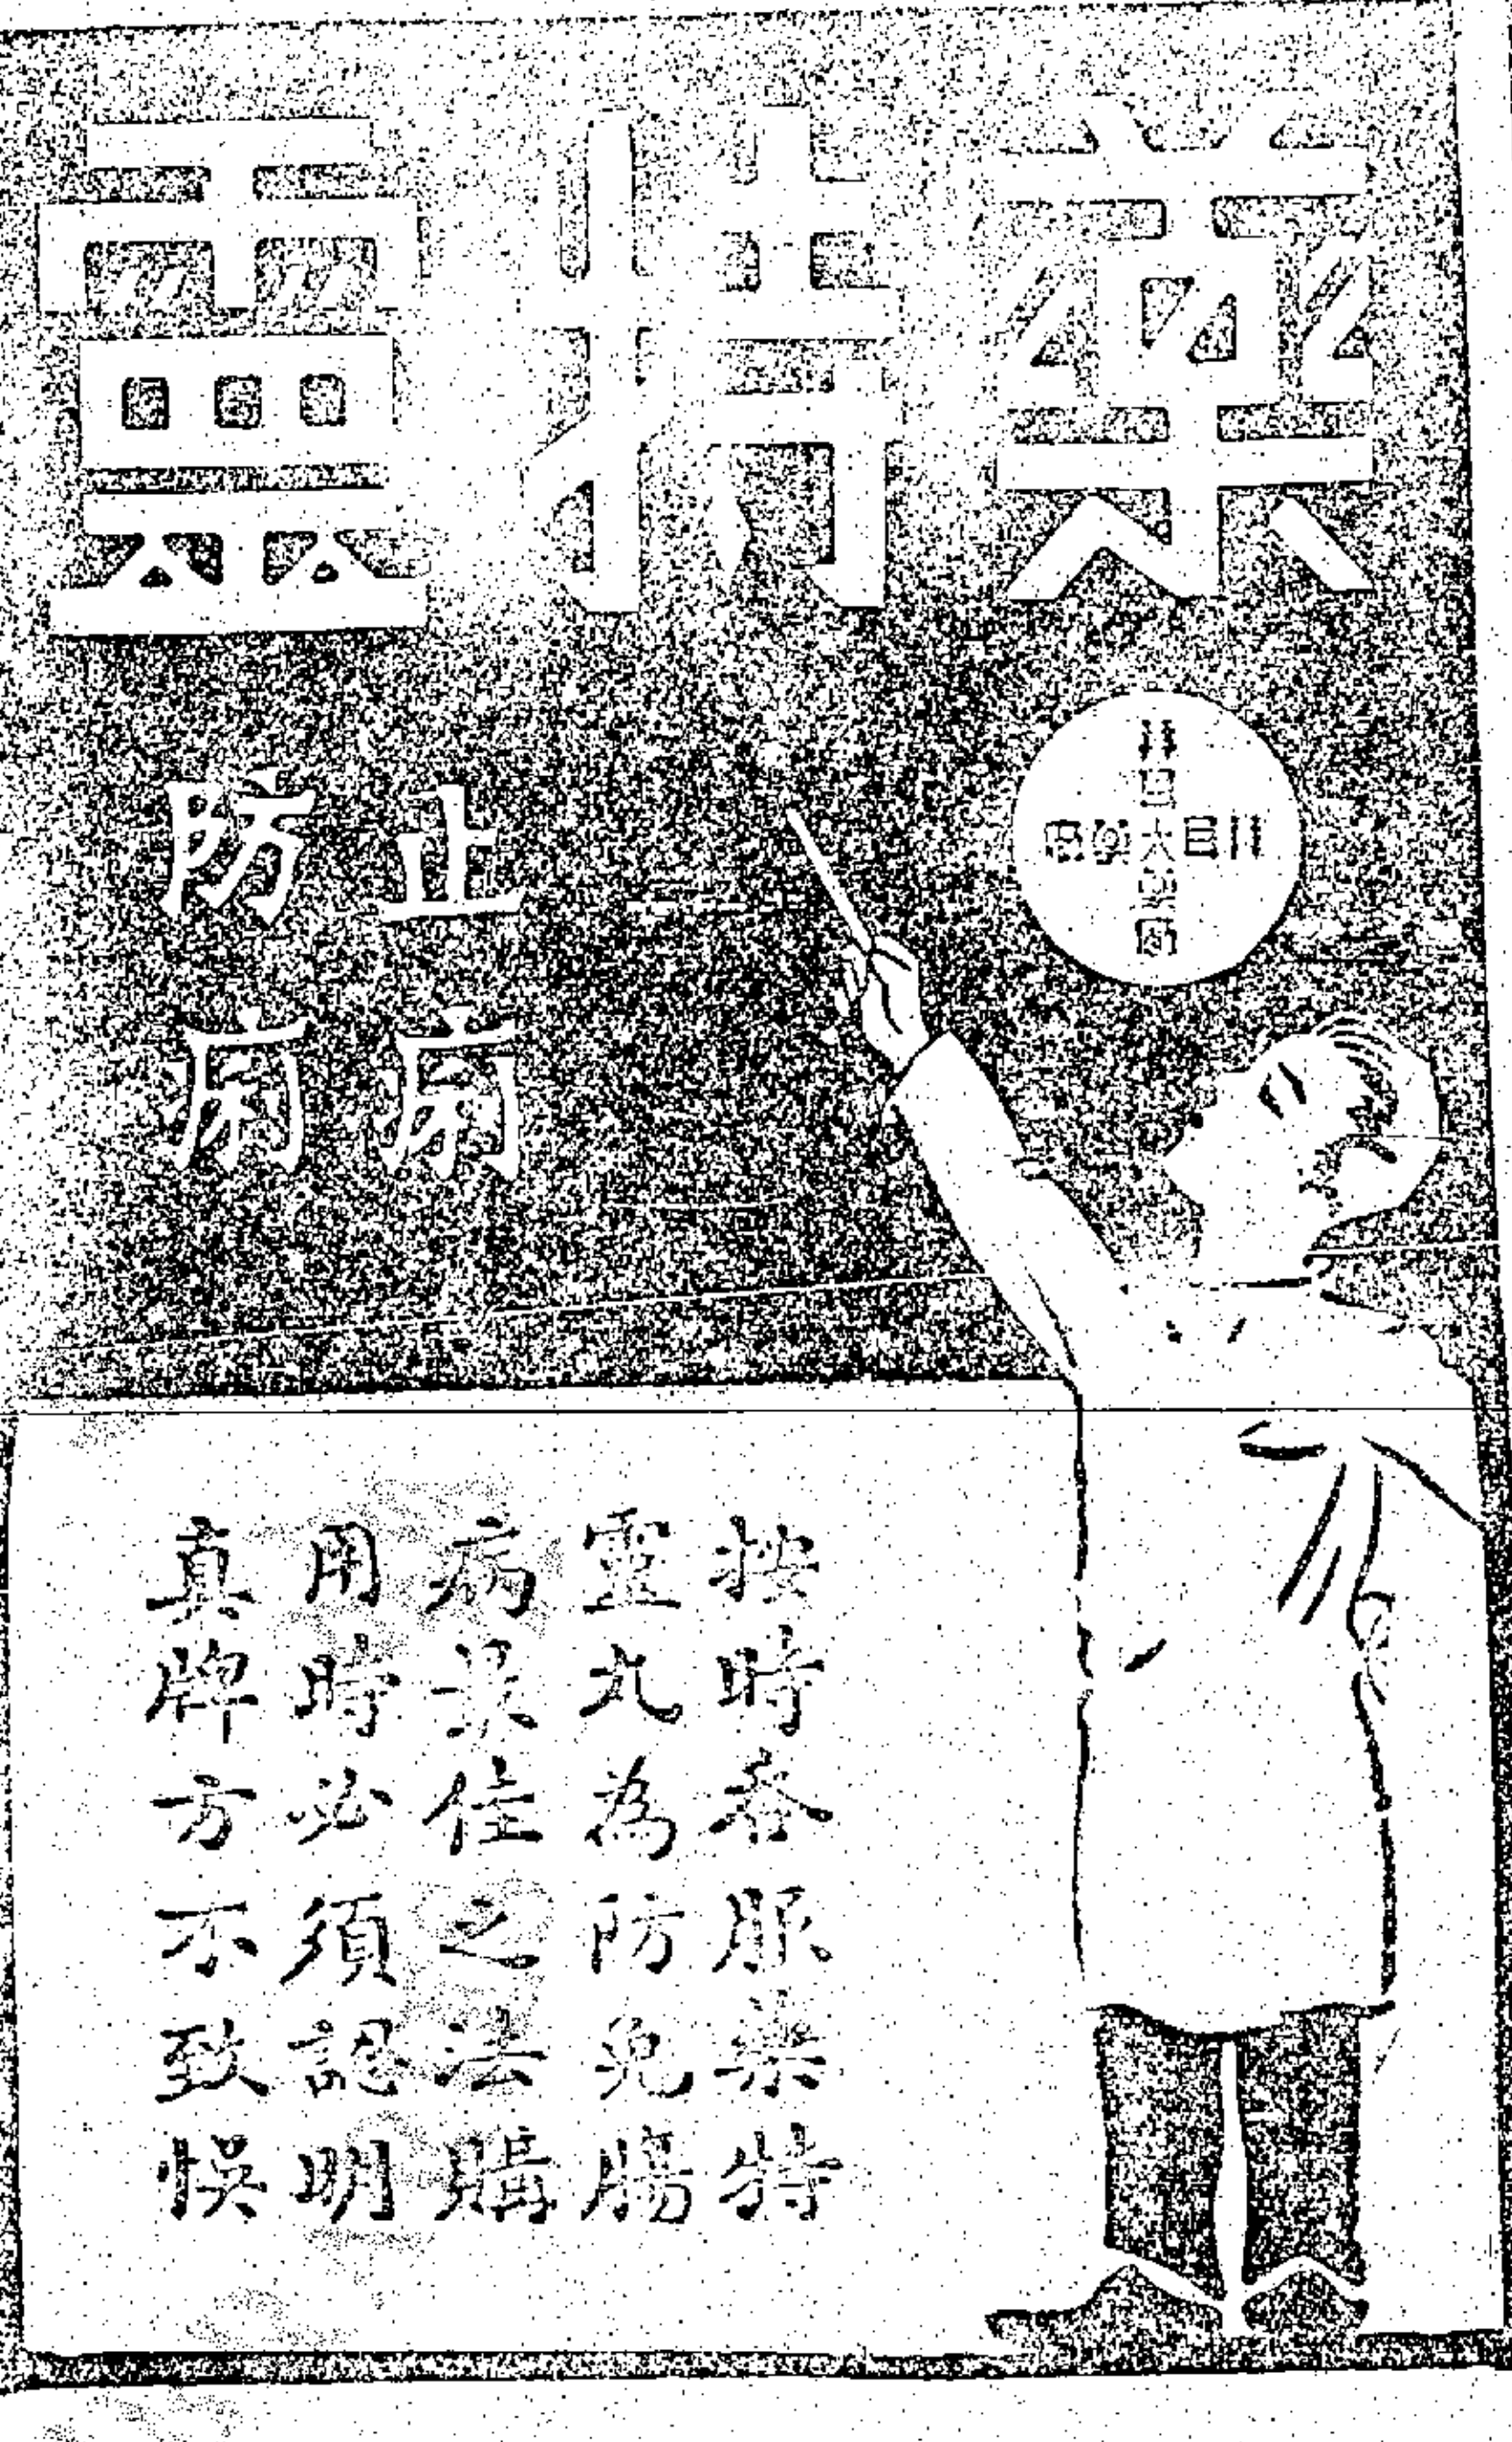 藥特靈
止痢
防痢
按時吞服藥特
靈丸為防免腸
病最佳之法購
用時必須認明
真牌方不致悞